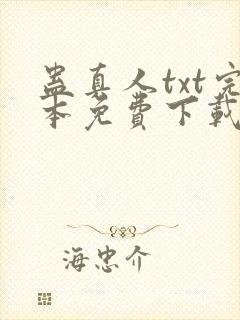 蛊真人txt完
本免费下载
海忠介